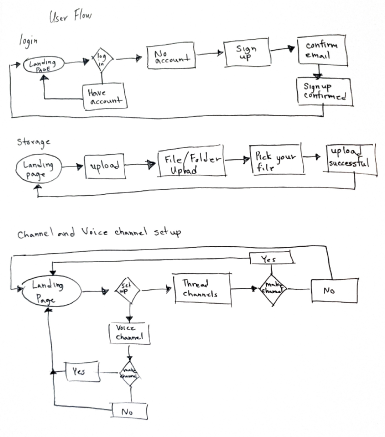 User Flow
login
Landing
Page
log
in
No
account
Sign
up
confirm
email
Have
account
Sign up
confirmed
Storage
Landing
page
upload
File/Folder
Upload
Pick your
file
upload
successful
Channel and Voice channel setup
Yes
Landing
Page
set
up
Thread
channels
make
channel
No
Voice
channel
Yes
make
channel
No